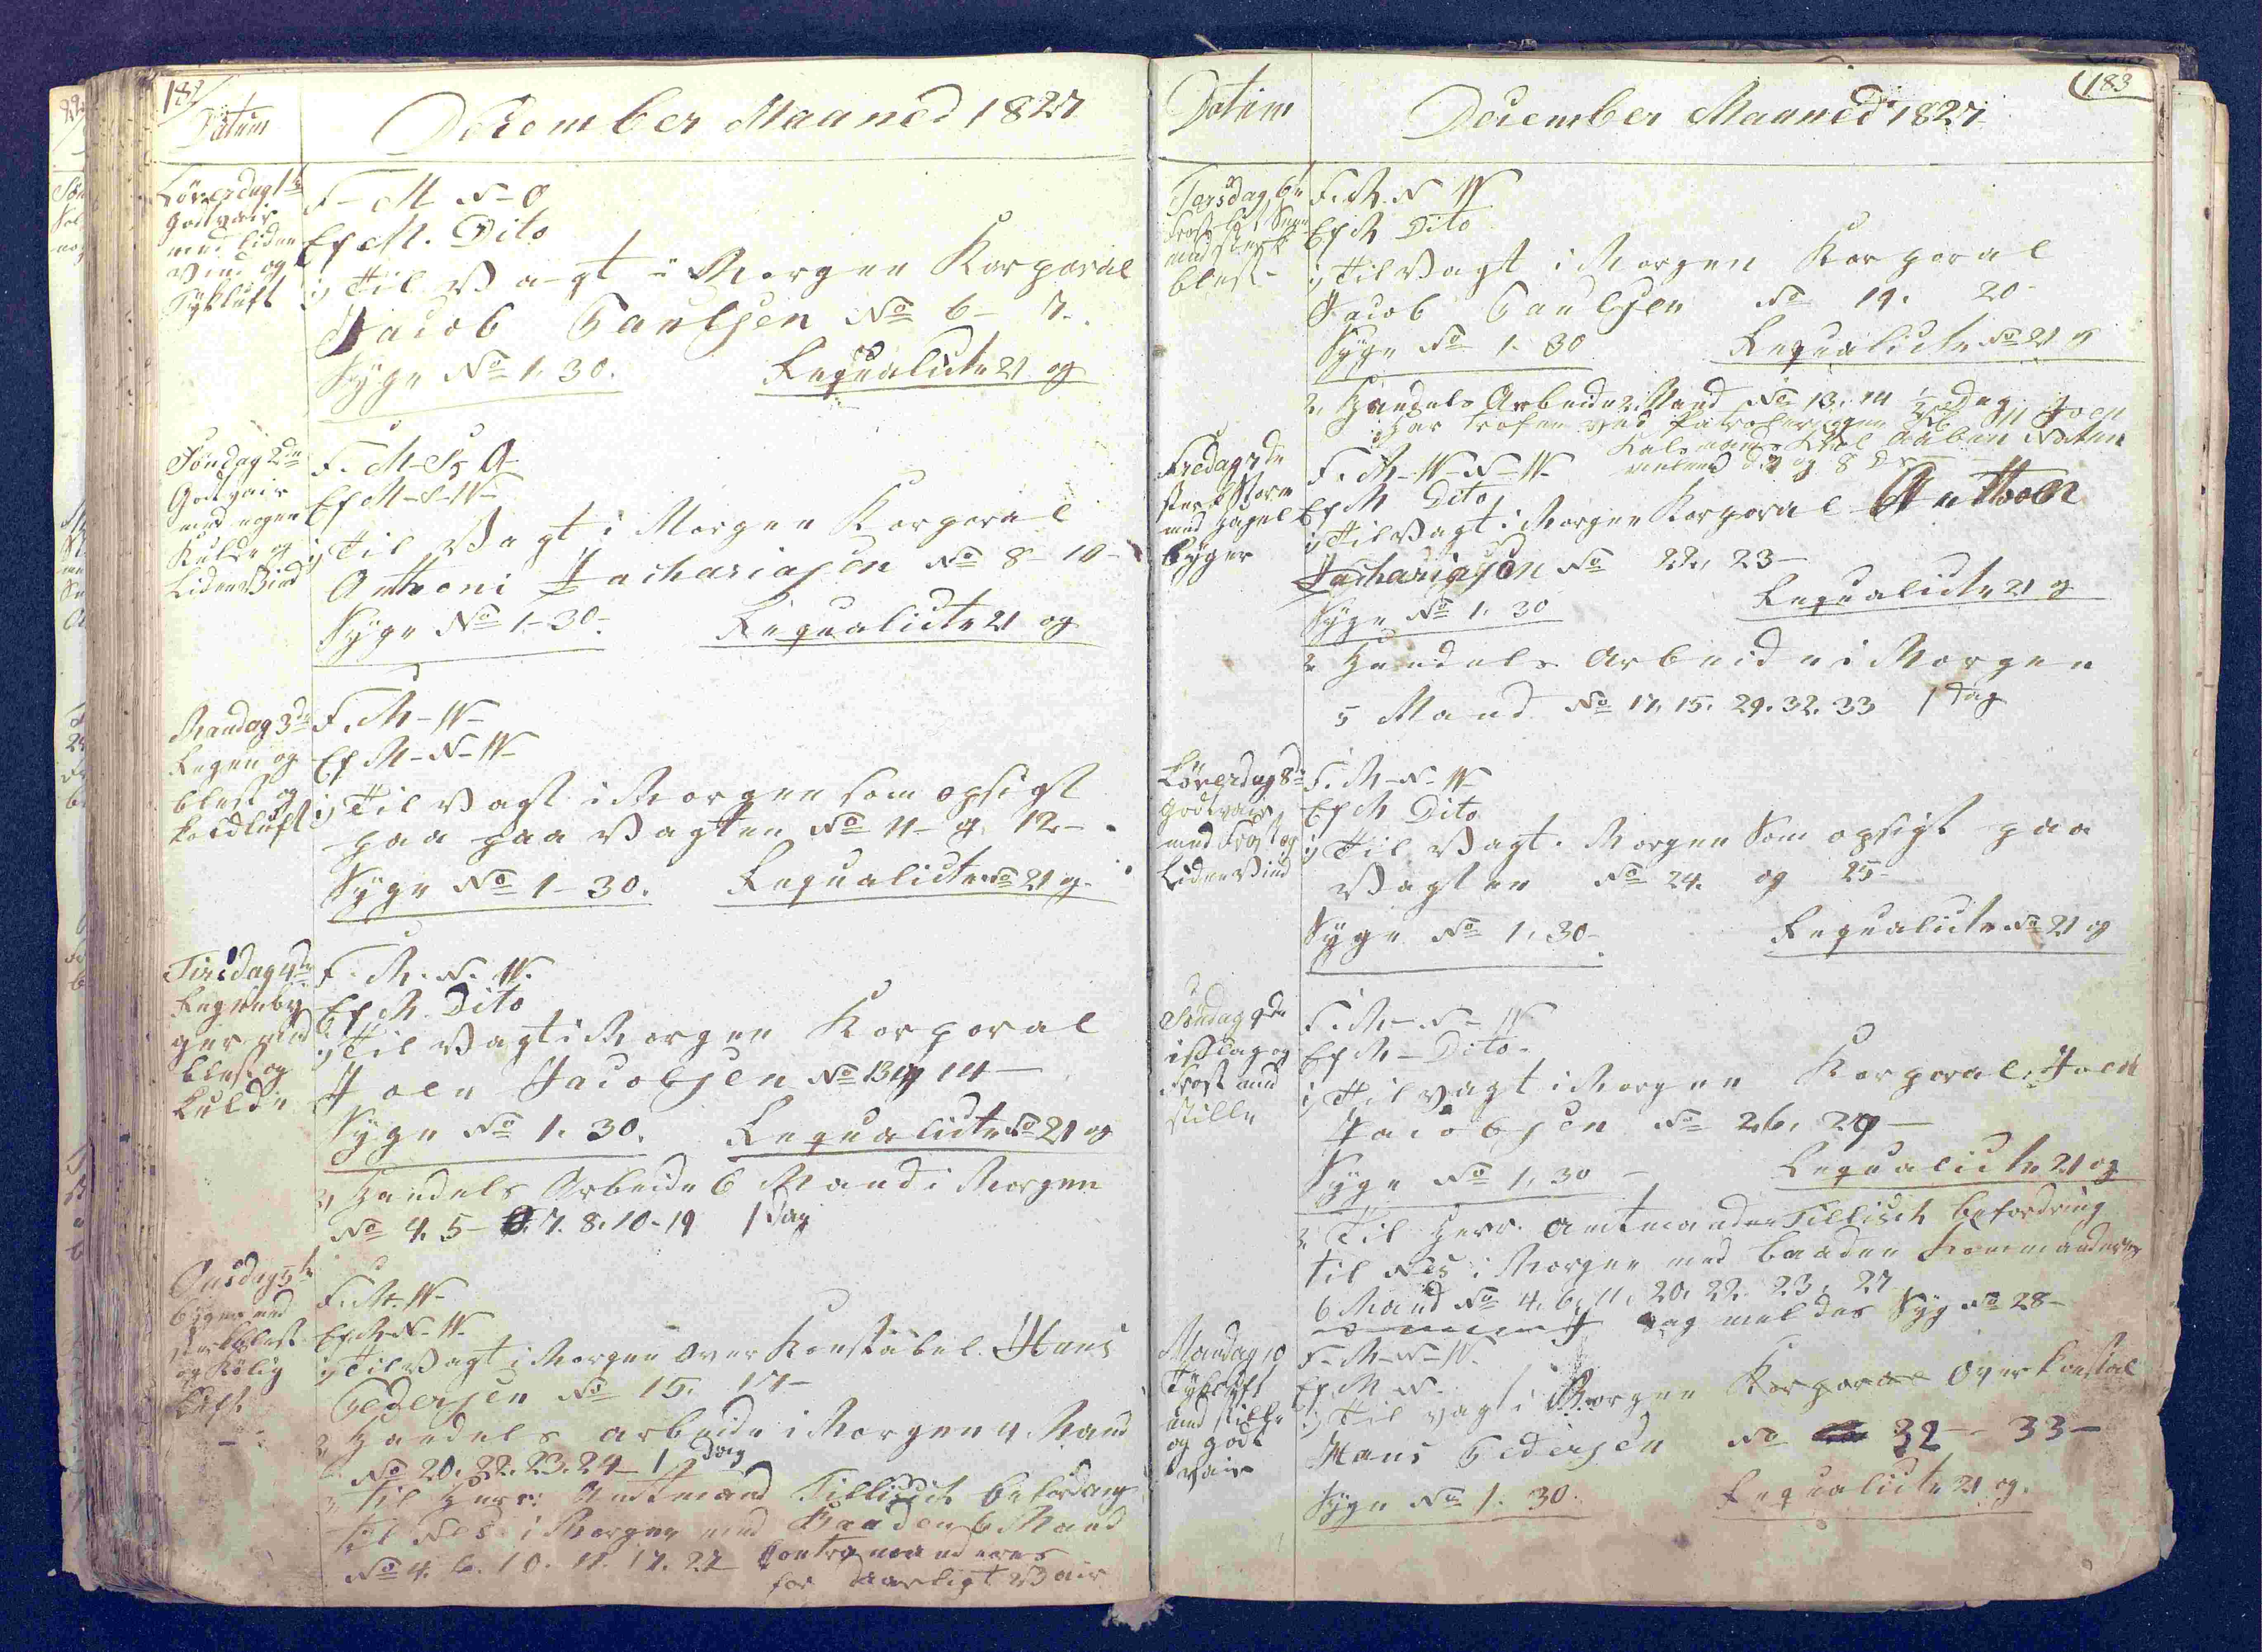 182
Datum
December Maaned 1827
Löverdag 1te
godt vair
med liden
Vind og
Tykluft
F-M N-O
EfM. Dito
1) Til Vagt i Morgen Korporal
Jacob Paulsen No 6- 7-
Syge No 1. 30.
Requalicte 21 og
Söndag 2den
Godt vair
med nogen
Kulde og
Liden Vind
F. M-S O-
EfM-S-W-
1) Til Vagt i Morgen Korporal
Anthoni Zachariasen No 8- 10-
Syge No 1-30-
Requalicte 21 og
Mandag 3de
Regen og
blest og
koldluft
F. M-W-
EfM-N-W-
1) Til Vagt i Morgen som opsigt
paa paa Vagten No 11- og 12-
Syge No 1-30.
Requalicte No 21 og
Tirsdag 4de
Regenby
ger med
blest og
kulde
F. M. N. W.
EfM. Dito
1) Til Vagt i Morgen Korporal
Joen Jacobsen No 13 og 14-
Syge No 1. 30.
Requalicte No 21 og
2) Handels Arbeide 6 Mand i Morgen
No 4. 5- 7. 8. 10-19 1 Dag
Onsdag 5te
byger med
sterk blest
og kölig
Luft
F. M. W-
EfM-N-W-
1) Til Vagt i Morgen Over Konstabel Hans
Pedersen No 15. 17-
2 Handels arbeide i Morgen 4 Mand
No 20. 22. 23. 24- 1 Dag
3 Til Herr: Amtmand Tillisch befordring
til Nes i Morgen med Baaden 6 Mand
No 4. 6. 10. 11. 17. 27 Contramanderes
for daarligt Vair
183
Datum
December Maaned 1827
Torsdag 6te
Frost og Snee
med sterk
blest-
F. M. N W
EfM Dito
1) Til Vagt i Morgen Korporal
Jacob Paulsen No 19. 20-
Syge No 1. 30
Requalicte No 21 og
2, Handels Arbeide 2 Mand No 13. 14 1/2 dag
Fredag 7de
sterk Storm
med Hagel
byger
F. M-W-N-W-
EfM Dito
1) Til Vagt i Morgen Korporal Anthon
Zachariasen No 22. 23-
Syge No 1. 30
Requalicte 21 og
2 Handels Arbeide i Morgen
5 Mand No 17. 15. 29. 32. 33 1 Dag
Löverdag 8de
godt vair
med Frost og
Liden Vind
F. M-N-W
EfM Dito
1) Til Vagt i Morgen Som opsigt paa
Vagten No 24. og 25-
Syge No 1. 30-
Requalicte No 21 og
Söndag 9de
islag og
Frost med
stille
F. M-N-W
EfM-Dito-
1) Til vagt i Morgen Korporal Joen
Jacobsen No 26. 29-
Syge No 1. 30
Requalicte 21 og
2. Til Herr. Amtmanden Tillisch befordring
til Nes i Morgen med baaden kommanderes
6 Mand No 4. 6. 11. 20. 22. 23. 27
Dag meldes Syg No 28-
Mandag 10
Tykluft
med stille
og godt
vair
F. M-N-W.
EfM N-
1) Til vagt i Morgen Korporal Over konstal
Hans Pedersen No 32-- 33-
Syge No 1. 30.
Requalicte 21 og.